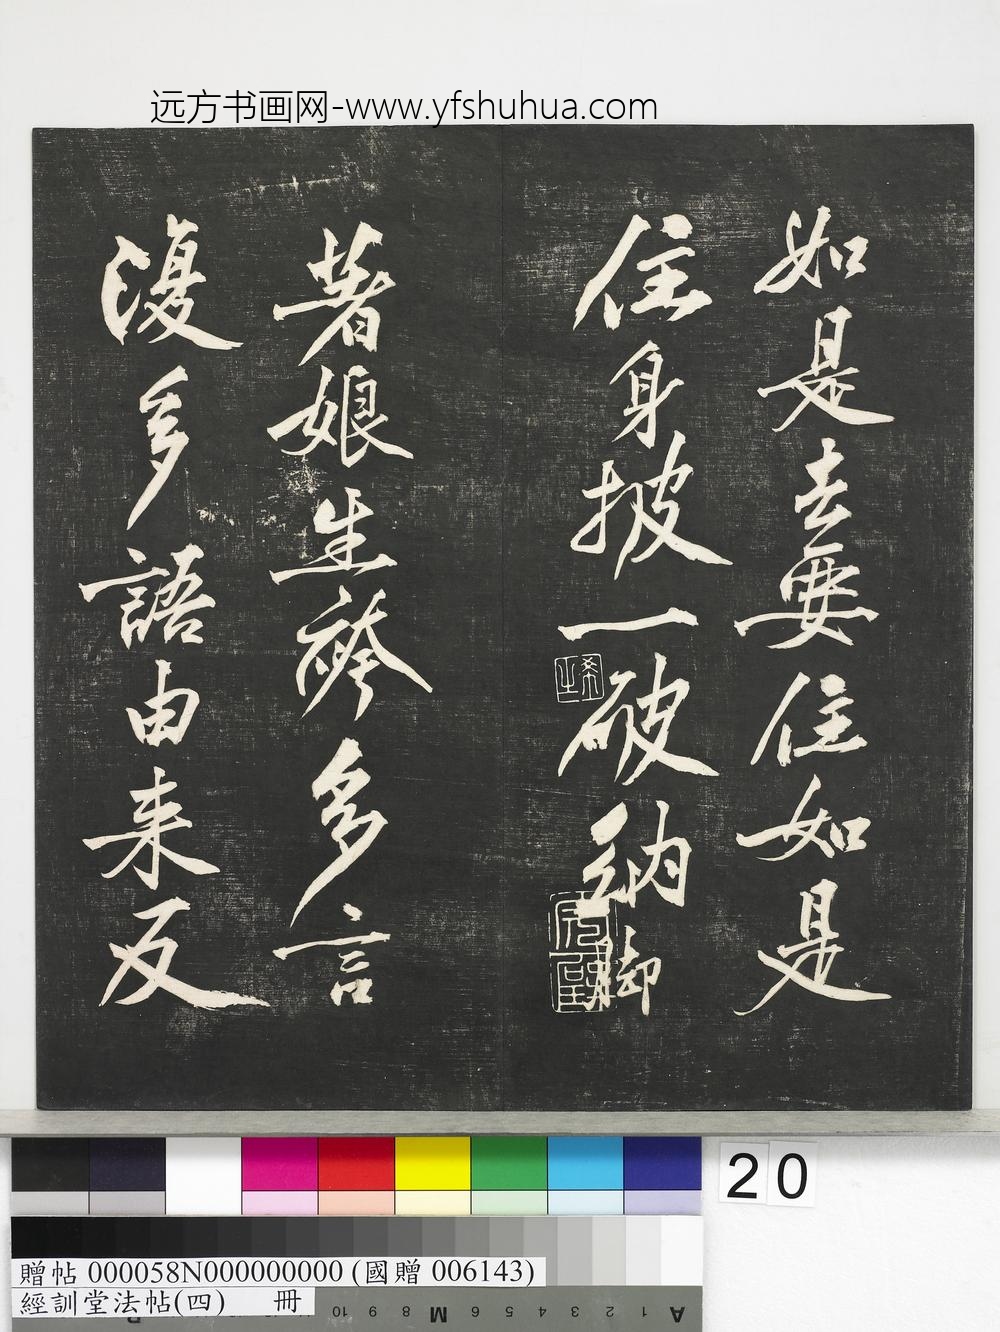 远方书画网-www.yfshuhua.com
如是去要住如是
住身披一破衲脚
著娘生袴多言
復多語由来反
20
贈帖 000058N000000000 (國贈 006143)
經訓堂法帖(四) 冊